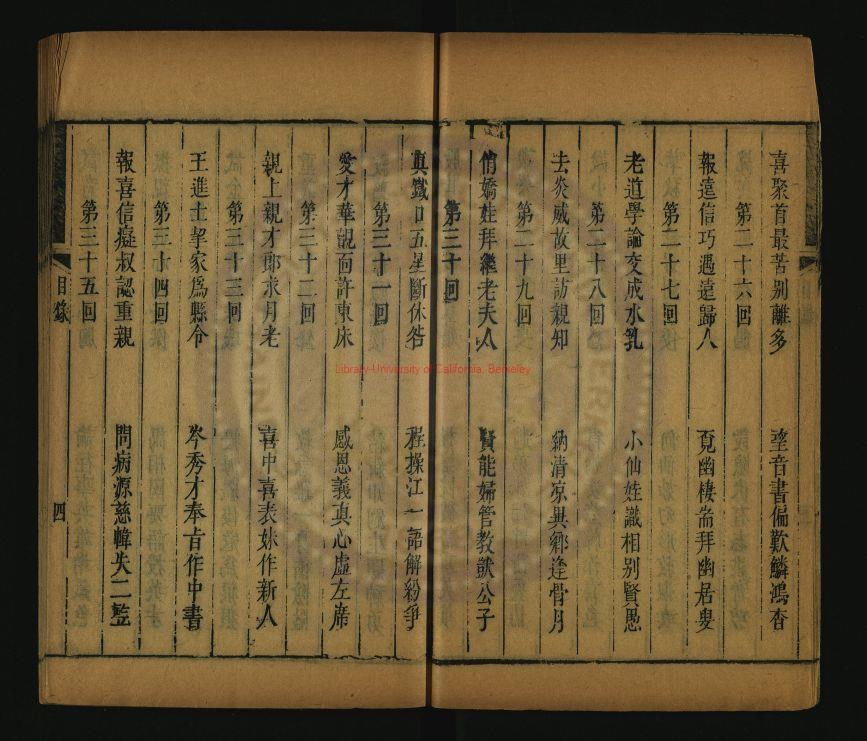 喜聚首最苦別離多　望音書偏歎鱗鴻杳
第二十六回
報遠信巧遇遠歸人　覓幽棲耑拜幽居叟
第二十七回
老道學論交成水乳　小仙娃識相别賢愚
第二十八回
去炎威故里訪親知　納清凉異鄉逢骨月
第二十九回
俏嬌娃拜繼老夫人　賢能婦管教獃公子
第三十回
真鐵口五星斷休咎　程操江一語解紛爭
第三十一回
愛才華覿面許東床　感恩義真心虛左席
第三十二回
親上親才郎求月老　喜中喜表妹作新人
第三十三回
王進士挈家爲縣令　岑秀才奉旨作中書
第三十四回
報喜信癡叔認重親　問病源慈幃失二豎
第三十五回
目錄
四
Library-University of California, Berkeley